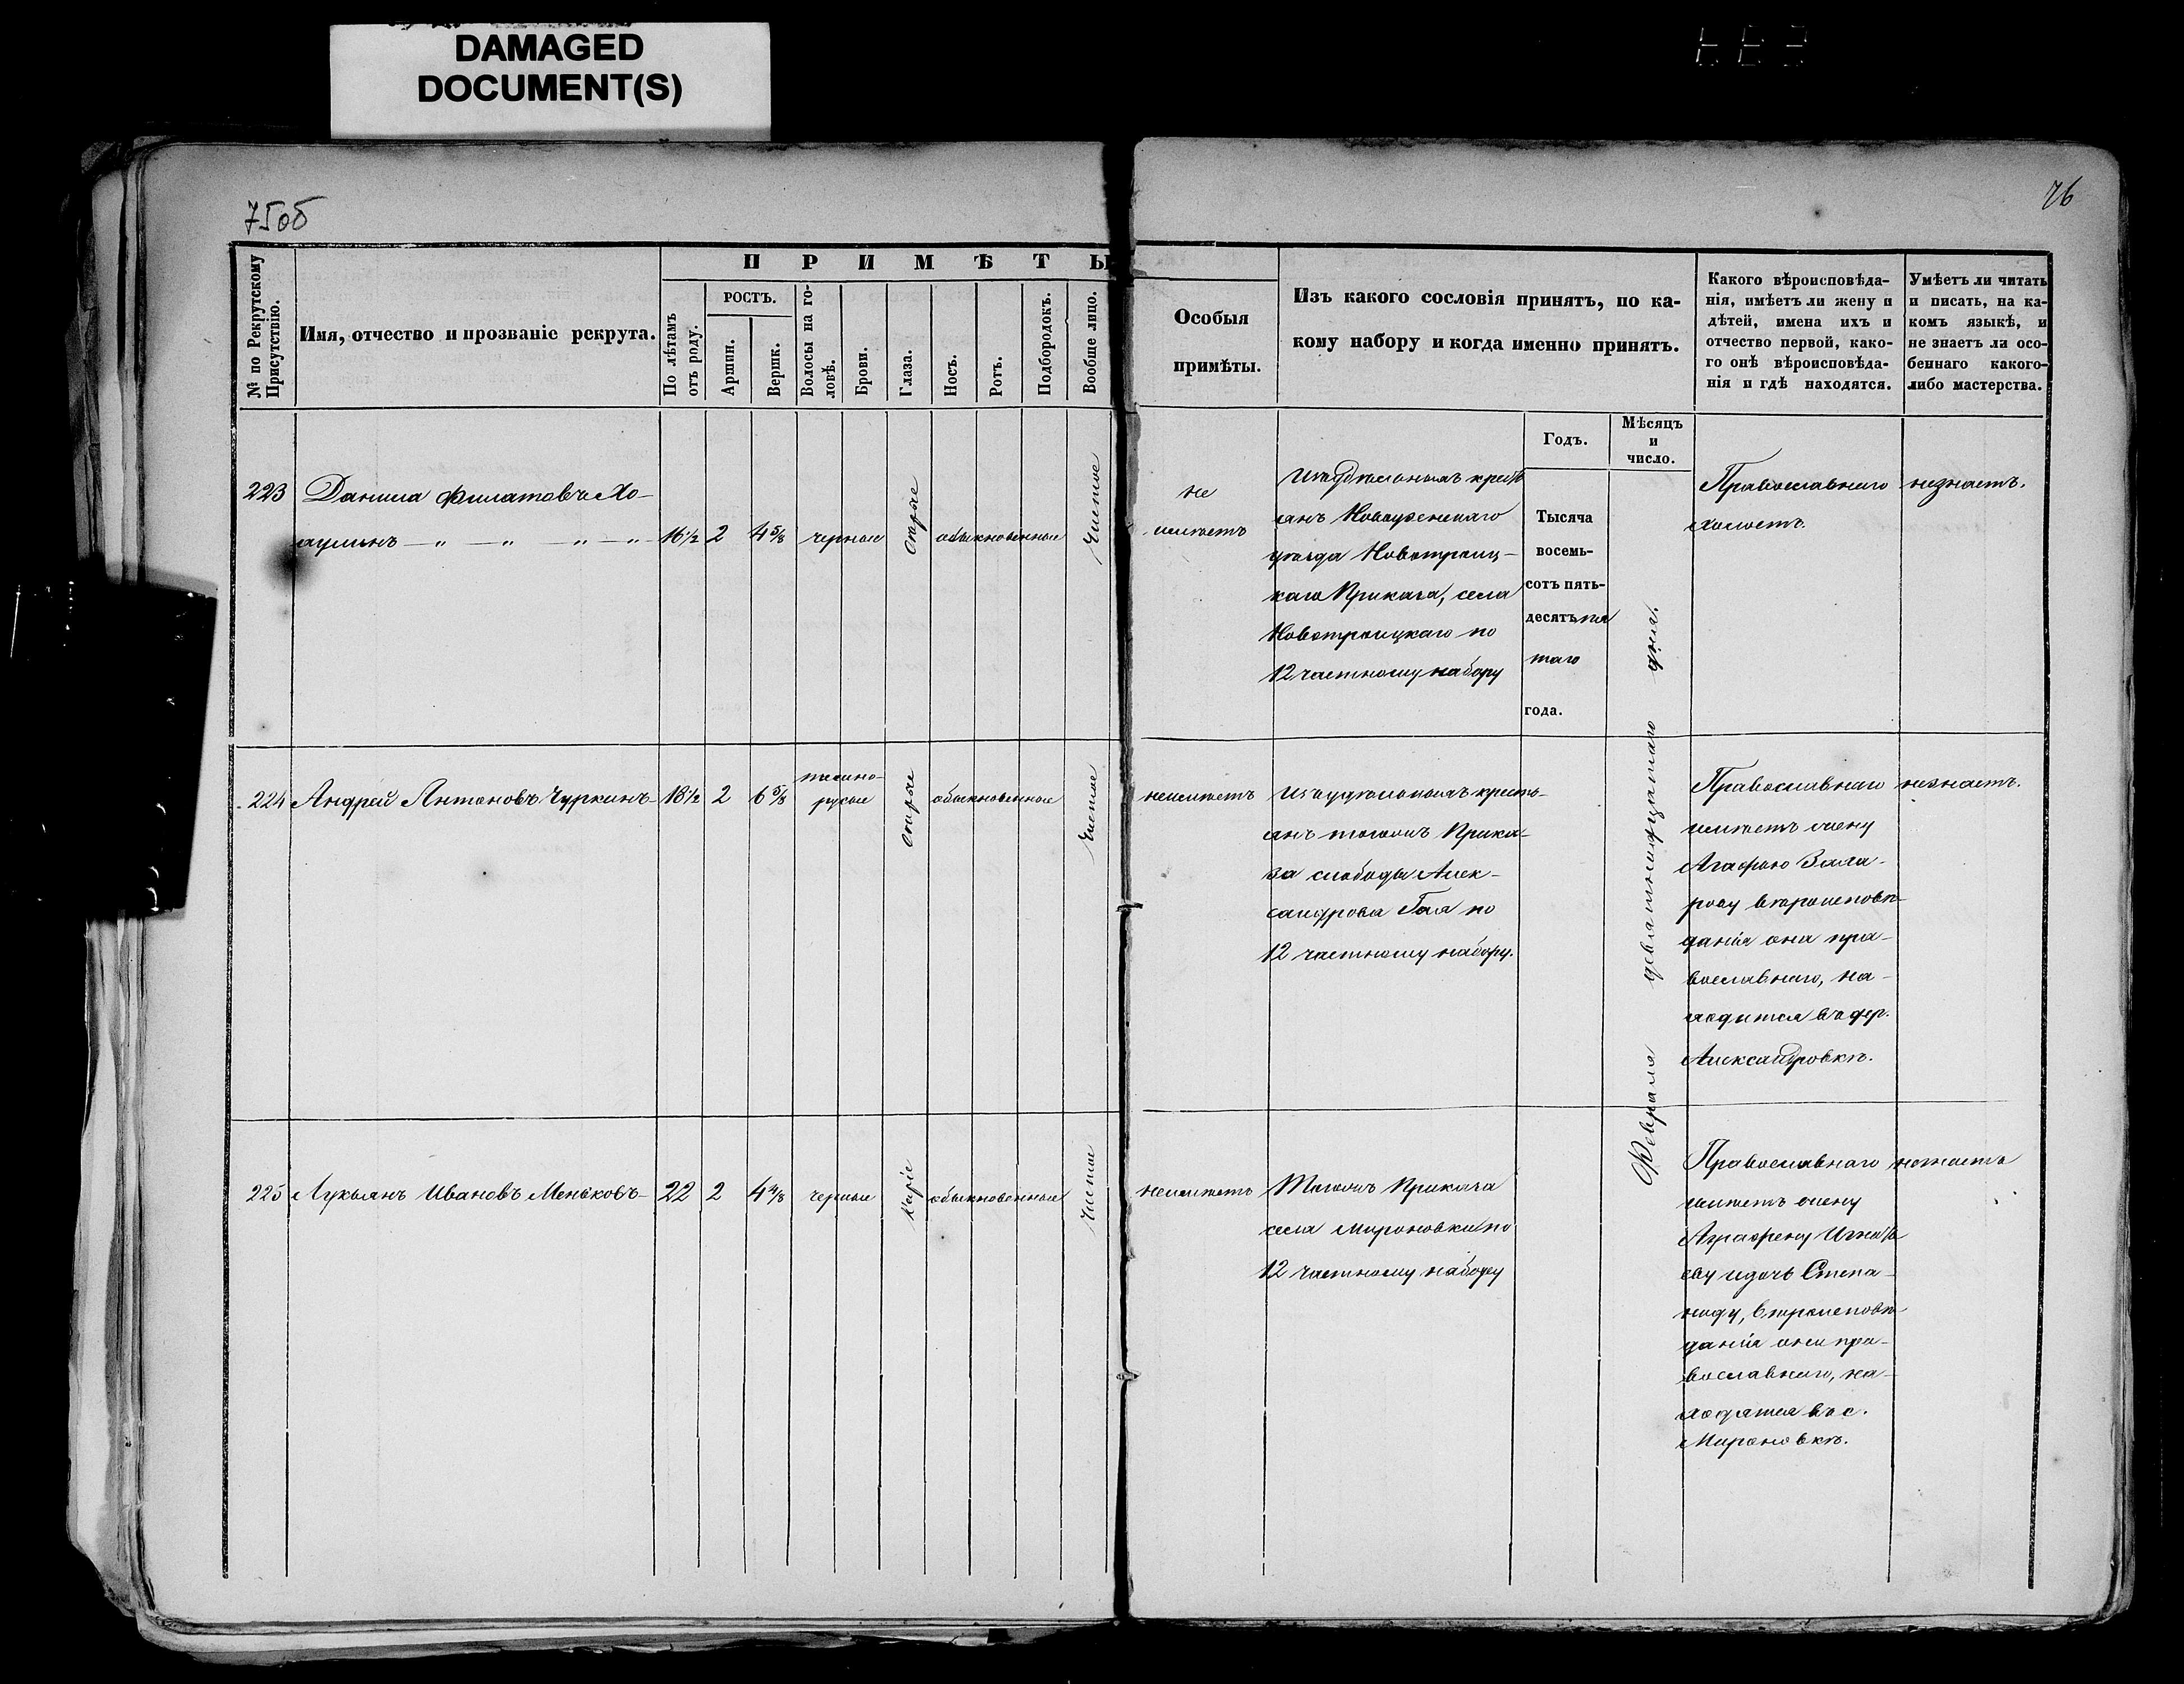 DAMAGED
DOCUMENT(S)
75об
76
№ по Рекрутскому
Присутствію.
Имя, отчество и прозваніе рекрута.
ПРИМѢТЫ
По лѣтамъ
отъ роду.
РОСТЪ.
Аршин.
Вершк.
Волосы на го-
ловѣ.
Брови.
Глаза.
Носъ.
Ротъ.
Подбородокъ.
Вообще лицо.
Особыя
примѣты.
Изъ какого сословія принятъ, по ка-
кому набору и когда именно принятъ.
Какого вѣроисповѣда-
нія, имѣетъ ли жену и
дѣтей, имена ихъ и
отчество первой, како-
го онѣ вѣроисповѣда-
нія и гдѣ находятся.
Умѣетъ ли читать
и писать, на ка-
комъ языкѣ, и
не знаетъ ли осо-
беннаго какого-
либо мастерства.
Годъ.
Мѣсяцъ
и
число.
223
Данила Филатовъ Хо-
аулинъ — „ — „ — „ — „ —
16 1/2
2
4 5/8
черные
сѣрые
обыкновенные
Чистое
не
имѣетъ
Изъ удѣльныхъ кресть
янъ Новоузенскаго
уѣзда Новотроиц-
каго Приказа, села
Новотроицкаго по
12 частному набору
Тысяча
восемь-
сотъ пять-
десятъ пя
таго
года.
Февраля девятнадцатаго дня.
Православнаго
холостъ.
незнаетъ.
224
Андрей Антоновъ Чуркинъ-
18 1/2
2
6 5/8
темно-
русые
сѣрые
обыкновенные
Чистое
неимѣетъ
Изъ удѣльныхъ кресть-
янъ тогожъ Прика-
за слободы Алек-
сандрова Гая по
12 частному набору.
Православнаго
имѣетъ жену
Агафью Заха-
рову вѣроисповѣ-
данія она пра-
вославнаго, на-
ходится въ дер.
Александровкѣ.
незнаетъ.
225
Лукьянъ Ивановъ Меньковъ-
22
2
4 4/8
черные
Каріе
обыкновенные
Чистое
неимѣетъ
Тогожъ Приказа
села Мироновки по
12 частному набору
Православнаго
имѣетъ жену
Аграфену Игнать
еву и дочь Степа-
ниду, вѣроисповѣ
данія они пра-
вославнаго, на-
ходятся въ с.
Мироновкѣ.
незнаетъ